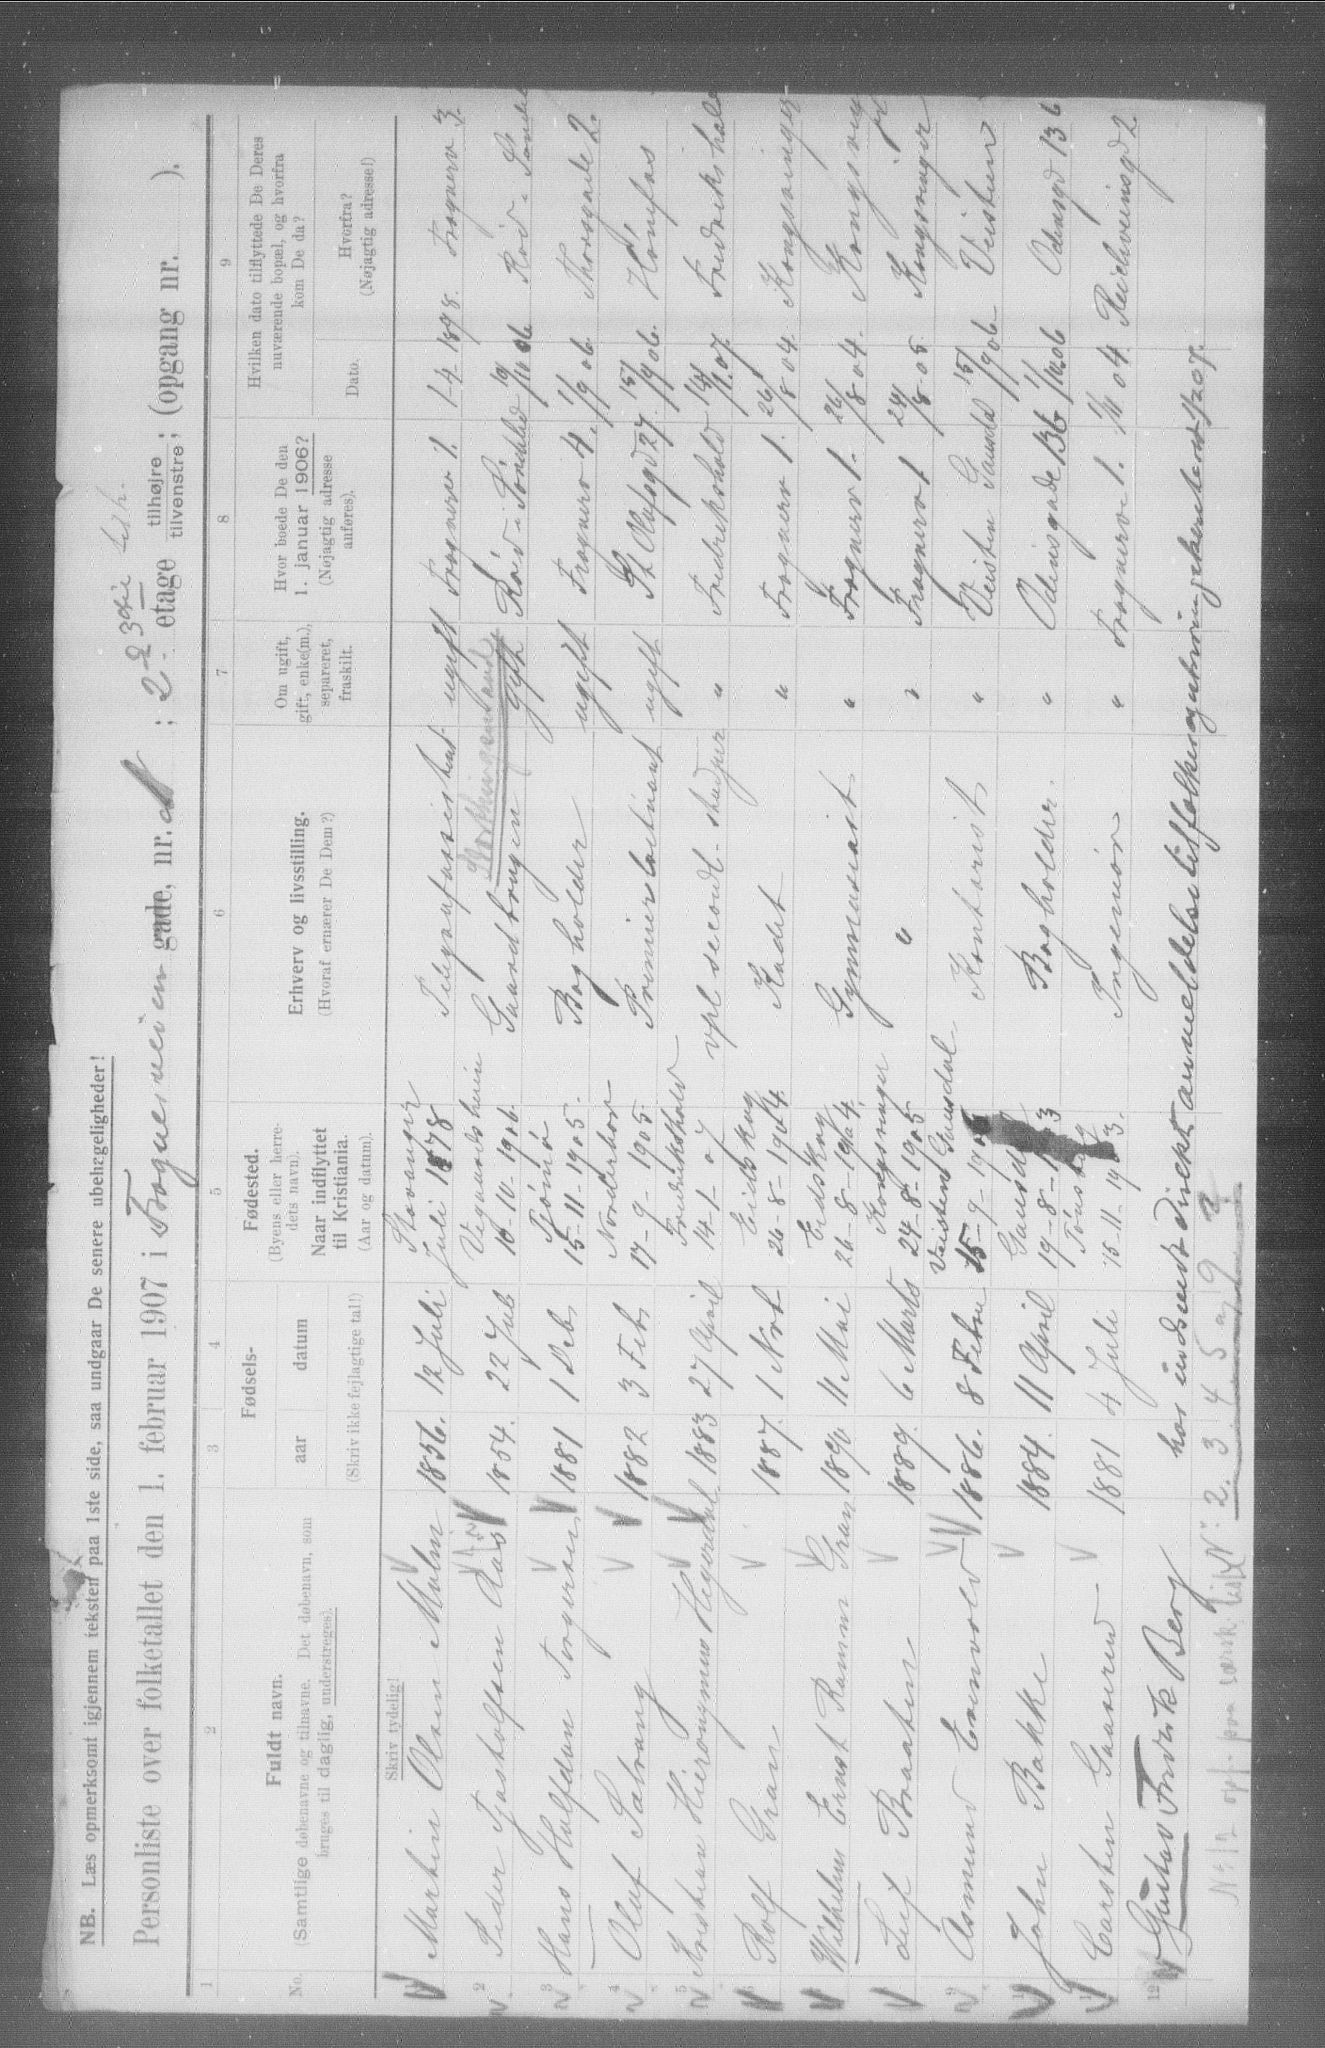 NB. Læs opmerksomt igjennem teksten paa 1ste side, saa undgaar De senere ubehageligheder!
Personliste over folketallet den 1. februar 1907 i Frognerveien gade, nr. 1; 2 etage tilhøjre tilvenstre; (opgang nr. ).
1 2 3 4 5 6 7 8 9
No.
Fuldt navn.
(Samtlige døbenavne og tilnavne. Det døbenavn, som
bruges til daglig, understreges).
Fødsels-
aar datum
(Skriv ikke fejlagtige tal!)
Fødested.
(Byens eller herre-
dets navn).
Naar indflyttet
til Kristiania.
(Aar og datum).
Erhverv og livsstilling.
(Hvoraf ernærer De Dem?)
Om ugift,
gift, enke(m.),
separeret,
fraskilt.
Hvor boede De den
1. januar 1906?
(Nøjagtig adresse
anføres).
Hvilken dato tilflyttede De Deres
nuværende bopæl, og hvorfra
kom De da?
Dato.
Hvorfra?
(Nøjagtig adresse!)
Skriv tydelig!
1 Martin Olsen Malm 1856. 12 Juli Stavanger Juli 1878 Telegrafassistent ugift Frognerv 1. 1-4-1898. Frognerv 3.
2 Peder Tjostolfsen Aas 1854. 22 Jul Vegaardsheien 10-10-1906 Gaardbruger Storthingsmand gift 10/10 06
3 Hans Halfdan Torgersen 1881 1 Deb Tjømø 15-11-1905. Bogholder ugift Frognerv 4. 1/9 06. Thorsgade 2.
4 Oluf Satrang 1882 3 Feb Norderhov 17-9-1905. Premierløitnant ugift St Olafsgd 27. 15/9 06. Hønefos
5 Andreas Hieronymus Heyerdahl 1883 27 April Fredrikshald 14-1-07 vpl secondl. " Fredrikshald 14/1 07. Fredrikshald
6 Rolf Gran 1887. 1 Novb Eidskog 26-8-1904 Kadet " Frognerv 1. 26/8 04. Kongsvinger
7 Wilhelm Ernst Ramm Gran 1890 11 Mai Eidskog 26-8-1904. Gymnasiast " Frognerv 1. 26/8 04. Kongsving
8 Leif Braaten 1889. 6 Marts Kongsvinger 24-8-1905 " " Frognerv 1 24/8 05 Kongsvinger
9 Asmund Enevold 1886. 8 Febr Gausdal 15-9-1906 Kontorist " 15/9 06.
10 John Bakke 1884. 11 April Gausdal 19-8-1903 Bogholder. " Odinsgade 13b 1/10 06 Odinsgd 13b
11 Carsten Gaarud 1881 4 Juli Tønsberg 15-11-1903. Ingeniør " Frognerv 1. 1/11 04. Reichweinsgd 2.
12 Gustav Fredrik Berg har indsendt direkt anmeldelse til folkeregistrering
No 12 opf. paa særsk. liste No 2. 3. 4 5 og 9